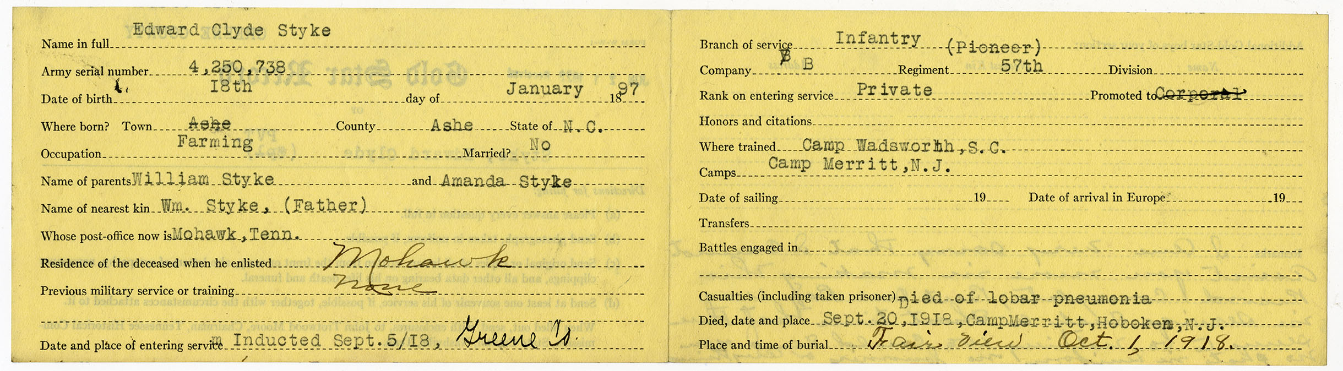 Name in full Edward Clyde Styke
Army serial number 4,250,738
Date of birth 18th day of January 1897
Where born? Town Ashe County Ashe State of N.C.
Occupation Farming Married? No
Name of parents William Styke and Amanda Styke
Name of nearest kin Wm. Styke, (Father)
Whose post-office now is Mohawk, Tenn.
Residence of the deceased when he enlisted Mohawk
Previous military service or training None
Date and place of entering service Inducted Sept. 5/18, Greene Co.
Branch of service Infantry (Pioneer)
Company B Regiment 57th Division
Rank on entering service Private Promoted to Corporal
Honors and citations
Where trained Camp Wadsworth, S.C.
Camps Camp Merritt, N.J.
Date of sailing 19 Date of arrival in Europe 19
Transfers
Battles engaged in
Casualties (including taken prisoner) Died of lobar pneumonia
Died, date and place Sept. 20, 1918, CampMerritt, Hoboken, N.J.
Place and time of burial Fair View Oct. 1, 1918.